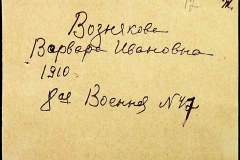 Вознякова
Варвара Ивановна
1910
8ая Военная N 47